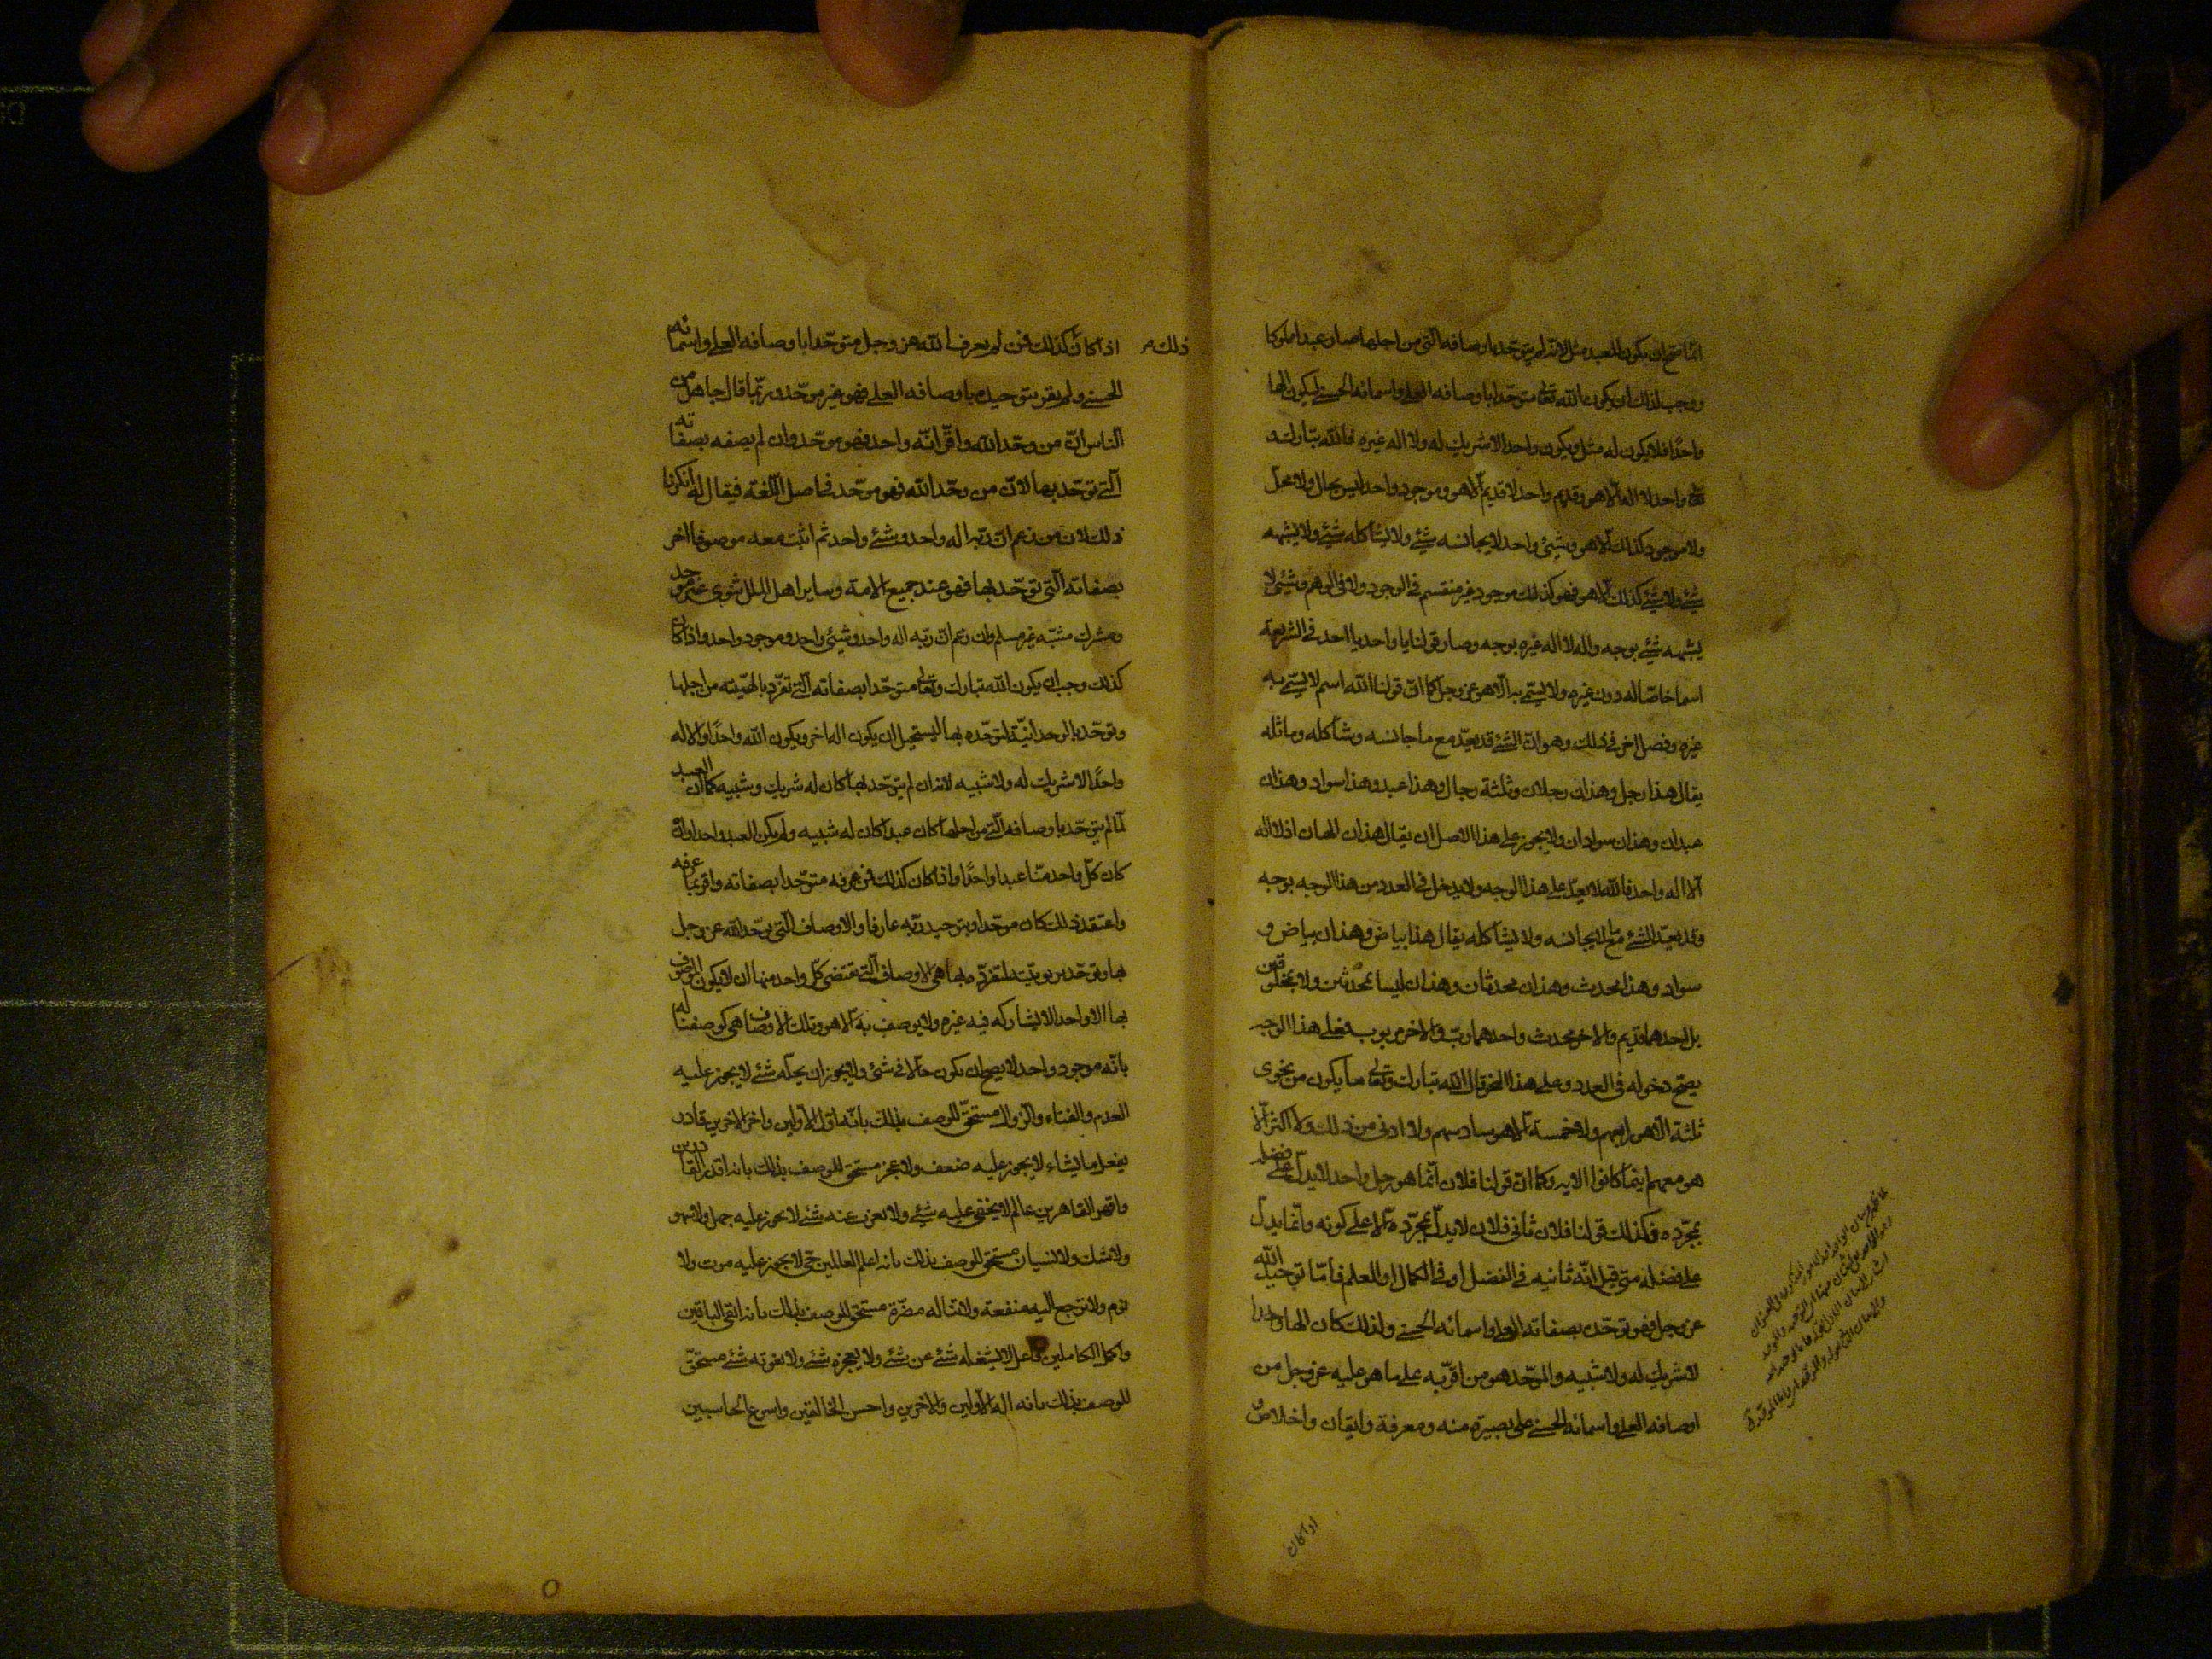 انّما صحّ ان يكون للعبد مثل لانّه لم يتوحّد باوصافه الّتي من اجلها صار عبدا مملوكا
ووجب لذلك ان يكون الله تعالى متوحّدا باوصافه العلى واسمائه الحسنى ليكون الها
واحدًا فلا يكون له مثل ويكون واحدا لا شريك له ولا اله غيره فالله تبارك و
تعالى واحد لا اله الّا هو وقديم واحد لا قديم الّا هو وموجود واحد ليس بحال ولا محلّ
ولا موجود كذلك الّا هو وشيئ واحد لا يجانسه شيئ ولا يشاكله شيئ ولا يشبهه
شيئ ولا شيئ كذلك الّا هو فهو كذلك موجود غير منقسم في الوجود ولا في الوهم وشيئ لا
يشبهه شيئ بوجه واله لا اله غيره بوجه وصار قولنا يا واحد يا احد في الشريعة
اسما خاصّا له دون غيره ولا يسمّى به الّا هو عز وجل كما انّ قولنا الله اسم لا يسمّى به
غيره وفصل اخر في ذلك وهو انّ الشيئ قد يعدّ مع ما جانسه وشاكله وماثله
يقال هذا رجل وهذان رجلان وثلثة رجال وهذا عبد وهذا سواد وهذان
عبدان وهذان سوادان ولا يجوز على هذا الاصل ان يقال هذان الهان اذ لا اله
الّا اله واحد فالله لا يعدّ على هذا الوجه ولا يدخل في العدد من هذا الوجه بوجه
وقد يعدّ الشيئ مع ما لا يجانسه ولا يشاكله يقال هذا بياض وهذان بياض و
سواد وهذا محدث وهذان محدثان وهذان ليسا بمحدثين ولا بمخلوقين
بل احدهما قديم والاخر محدث واحدهما ربّ والاخر مربوب فعلى هذا الوجه
يصحّ دخوله في العدد وعلى هذا النحو قال الله تبارك وتعالى ما يكون من نجوى
ثلثة الّا هو رابعهم ولا خمسة الّا هو سادسهم ولا ادنى من ذلك ولا اكثر الّا
هو معهم اينما كانوا الاية وكما انّ قولنا فلان انّما هو رجل واحد لا يدلّ على فضله
بمجرّده فكذلك قولنا فلان ثاني فلان لا يدلّ بمجرّده الّا على كونه وانّما يدلّ
على فضله متى قيل انّه ثانيه في الفضل او في الكمال او العلم فامّا توحيد الله
عز وجل فهو توحّده بصفاته العلى واسمائه الحسنى ولذلك كان الها واحدا
لا شريك له ولا شبيه والموحّد هو من اقرّ به على ما هو عليه عز وجل من
اوصافه العلى واسمائه الحسنى على بصيرة منه ومعرفة وايقان واخلاص و
اذا كان
ذلك
اذا كان كذلك فمن لم يعرف الله عز وجل متوحّدا باوصافه العلى واسمائه
الحسنى ولم يقر بتوحيده باوصافه العلى فهو غير موحّد وربّما قال جاهل من
الناس انّ من وحّد الله واقرّ انّه واحد فهو موحّد وان لم يصفه بصفاته
الّتي توحّد بها لانّ من وحّد الله فهو موحّد في اصل اللّغة فيقال له انكرنا
ذلك لان من زعم انّ ربّه اله واحد وشيئ واحد ثم اثبت معه موصوفا اخر
بصفاته الّتي توحّد بها فهو عند جميع الامة وساير اهل الملل ثنوى غير موحد
ومشرك مشبّه غير مسلم وان زعم انّ ربّه اله واحد وشيئ واحد وموجود واحد واذا كان
كذلك وجب ان يكون الله تبارك وتعالى متوحّدا بصفاته الّتي تفرّد بالهيّته من اجلها
وتوحّد بالوحدانيّة لتوحّده بها ليستحيل ان يكون اله اخر ويكون الله واحدًا والاله
واحدًا لا شريك له ولا شبيه لانه ان لم يتوحّد بها كان له شريك وشبيه كما ان العبد
لمّا لم يتوحّد باوصافه الّتي من اجلها كان عبدا كان له شبيه ولم يكن العبد واحدا وان
كان كلّ واحد منّا عبدا واحدًا واذا كان كذلك فمن عرفه متوحّدا بصفاته واقر بما عرفه
واعتقد ذلك كان موحّدا وبتوحيد ربّه عارفا والاوصاف الّتي توحّد الله عز وجل
بها وتوحّد بربوبيّته لتفرّده بها هي الاوصاف الّتي يقتضى كلّ واحد منها ان لا يكون الموصوف
بها الا واحدا لا يشاركه فيه غيره ولا يوصف به الّا هو وتلك الاوصاف هي كوصفنا له
بانّه موجود واحد لا يصح ان يكون حالّا في شئ ولا يجوز ان يحلّه شئ لا يجوز عليه
العدم والفناء والزوال مستحقّ للوصف بذلك بانّه اوّل الاوّلين واخر الاخرين قادر
يفعل ما يشاء لا يجوز عليه ضعف ولا عجز مستحق للوصف بذلك بانه اقدر القادرين
واقهر القاهرين عالم لا يخفى عليه شيئ ولا يعزب عنه شئ لا يجوز عليه جهل ولا سهو
ولا شك ولا نسيان مستحق للوصف بذلك بانه اعلم العالمين حىّ لا يجوز عليه موت ولا
نوم ولا ترجع اليه منفعة ولا تناله مضرّة مستحق للوصف بذلك بانه ابقى الباقين
واكمل الكاملين فاعل لا يشغله شئ عن شئ ولا يعجزه شئ ولا يفوته شئ مستحقّ
للوصف بذلك بانه اله الاوّلين والاخرين واحسن الخالقين واسرع الحاسبين